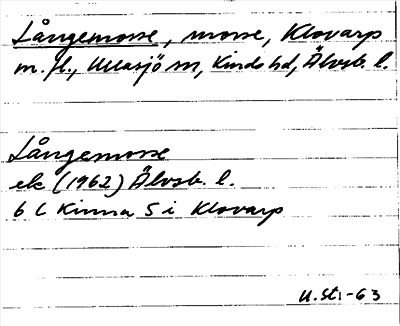 Långemosse, mosse, Klovarp
m. fl., Ullasjö sn, Kinds hd, Älvsb. l.
Långemosse
ek (1962) Älvsb. l.
6 C Kinna S i Klovarp
U. St. -63